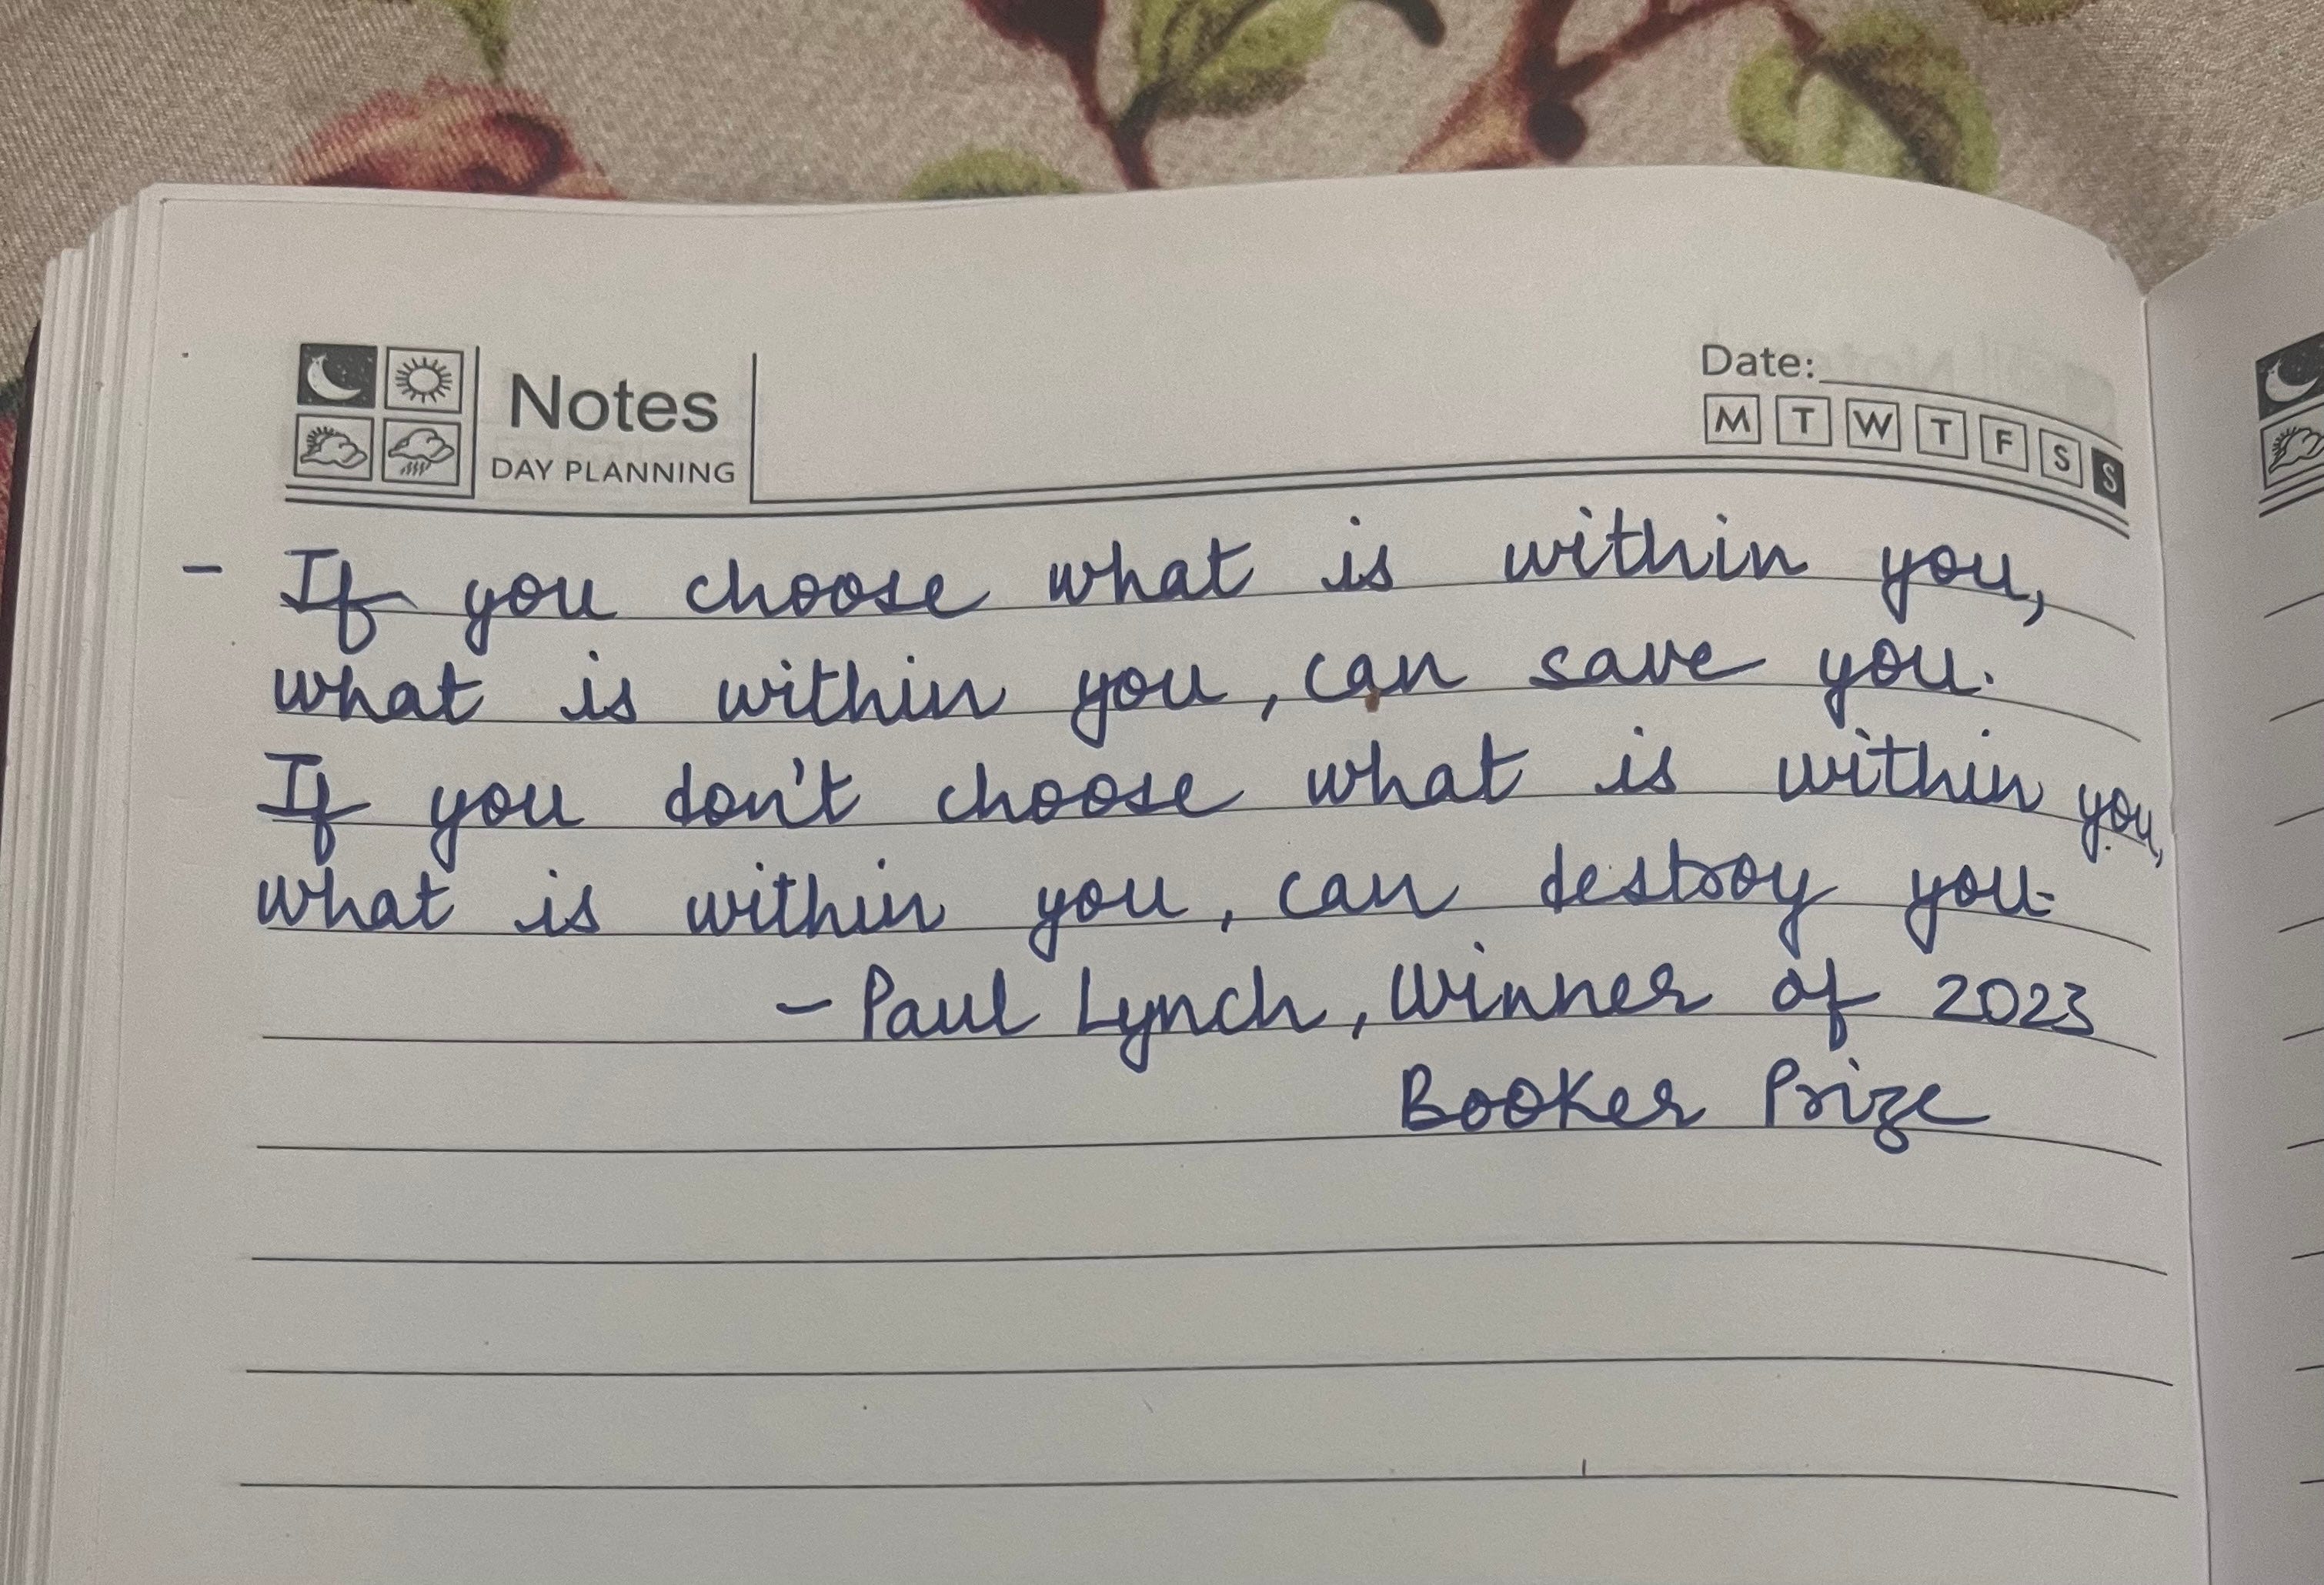 Notes
DAY PLANNING
Date:
M T W T F S S
- If you choose what is within you,
what is within you, can save you.
If you don't choose what is within you,
what is within you, can destroy you.
- Paul Lynch, Winner of 2023
Booker Prize